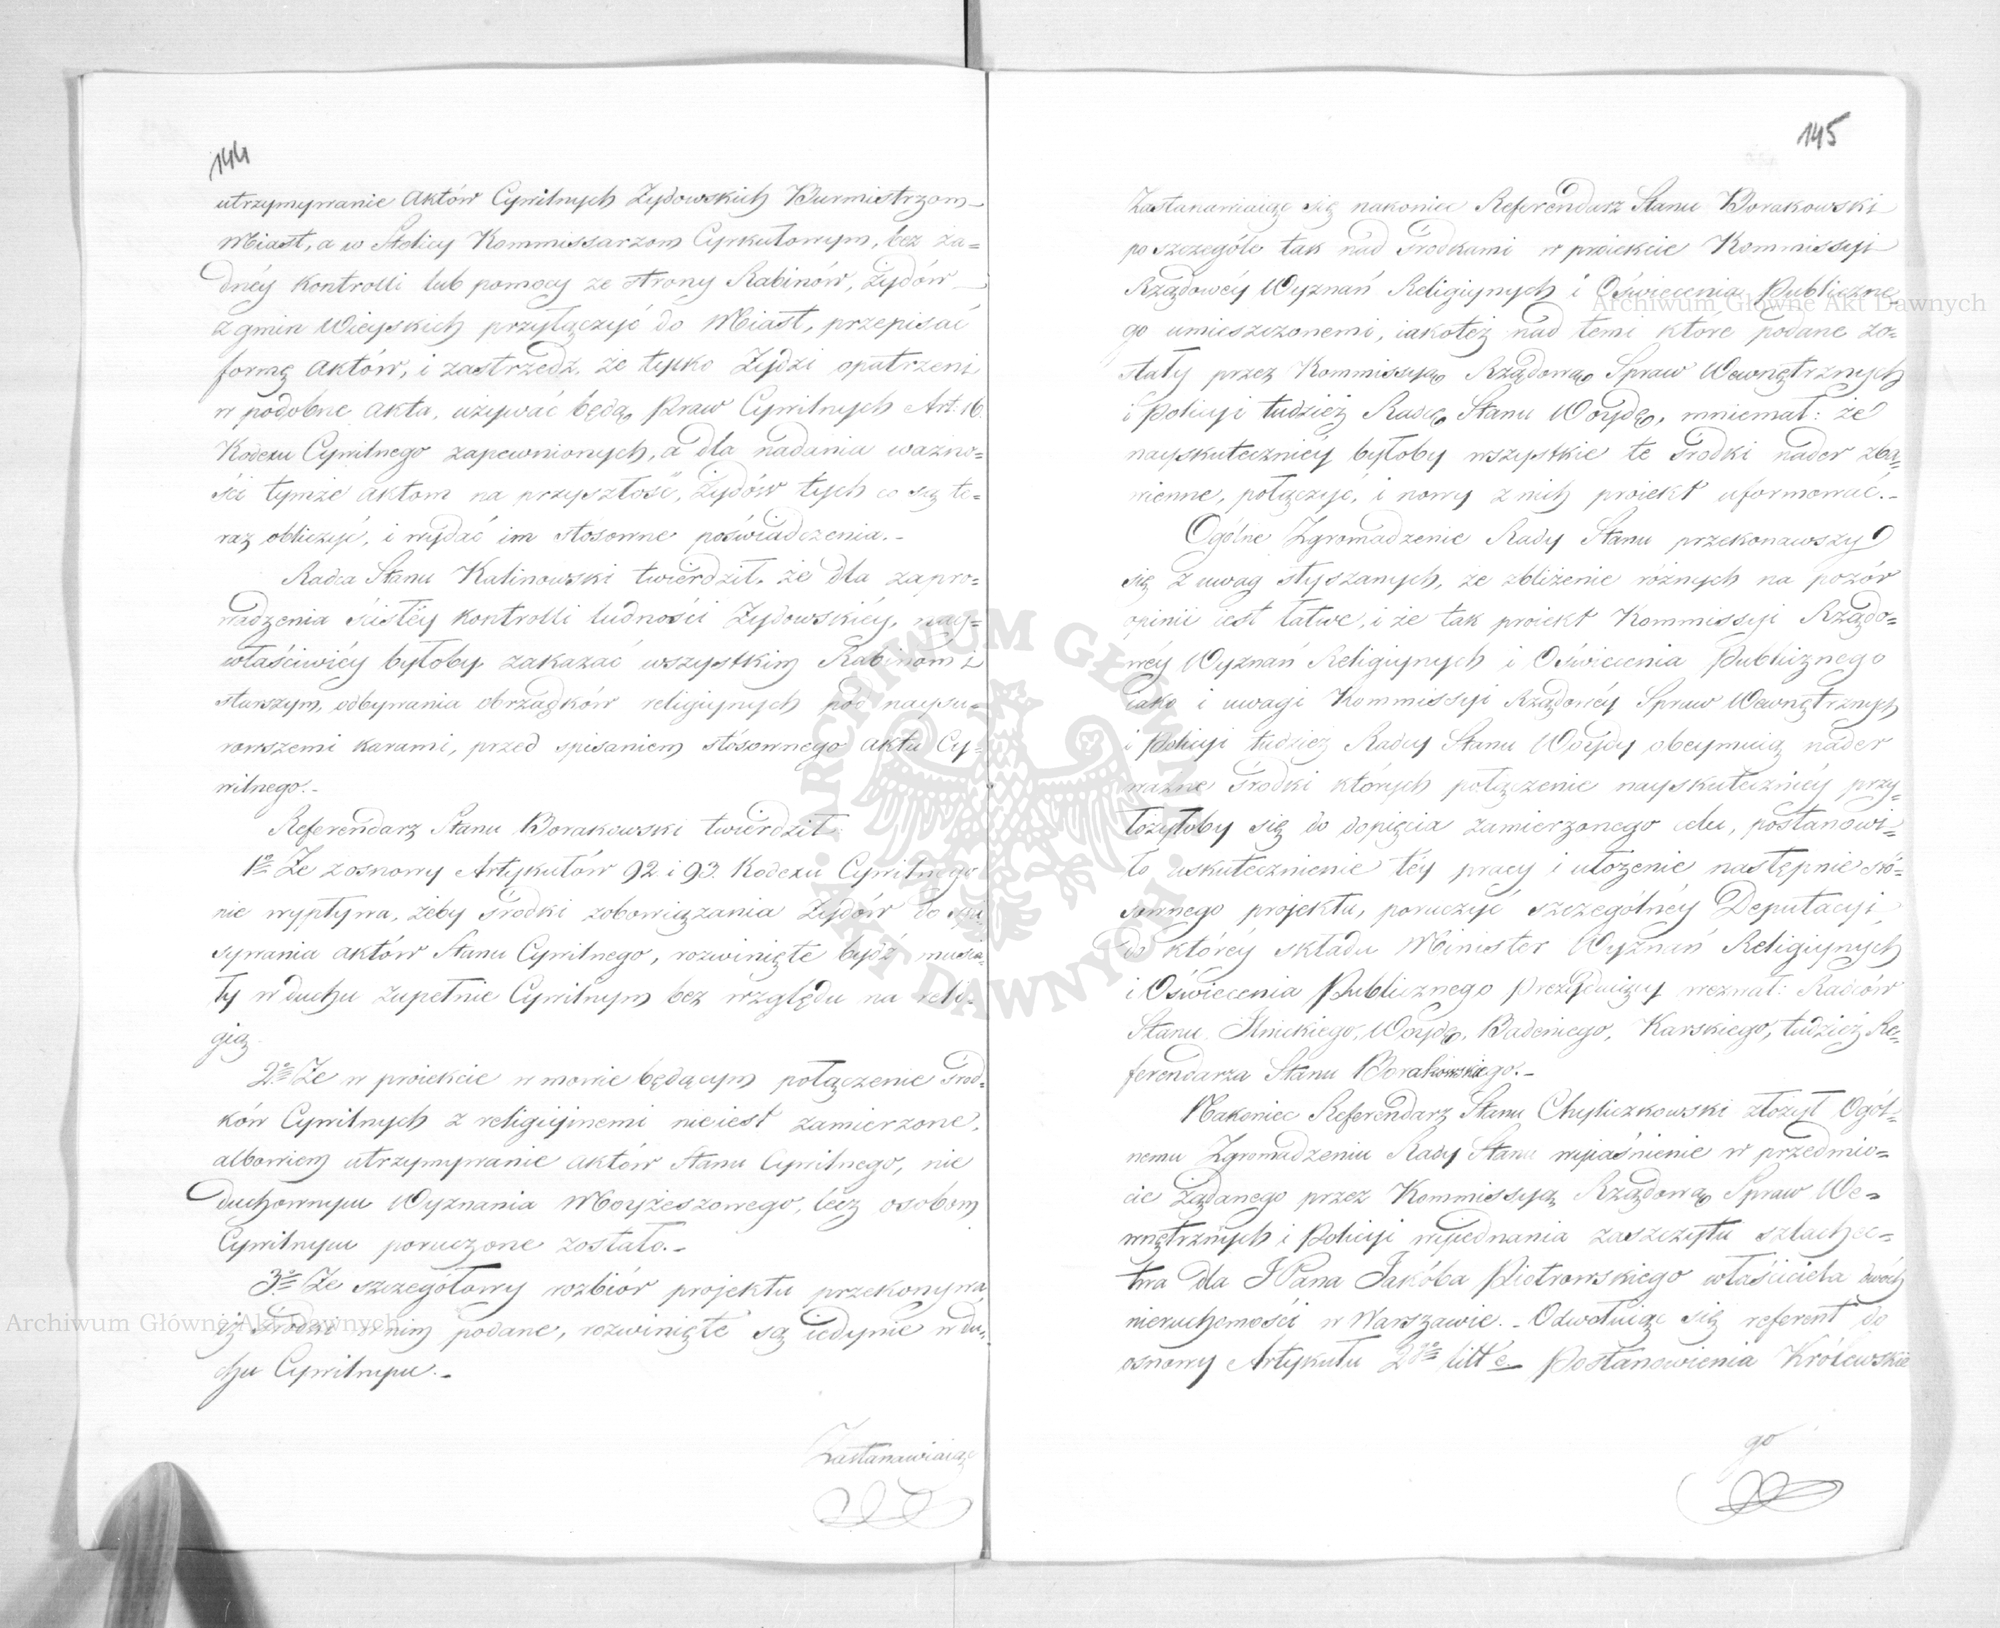 144
utrzymywanie Aktów Cywilnych Żydowskich Burmistrzom
Miast, a w Stolicy Kommissarzom Cyrkułowym, bez ża=
dnéy kontrolli lub pomocy ze strony Rabinów, Żydów
z gmin Wieyskich przyłączyć do Miast, przepisać
formę Aktów, i zastrzedz, że tylko Żydzi opatrzeni
w podobne Akta, używać będą Praw Cywilnych Art. 16.
Kodexu Cywilnego zapewnionych, a dla nadania ważno=
ści tymże Aktom na przyszłość, Żydów tych co się te=
raz obliczyć, i wydać im stosowne poświadczenia.-
Radca Stanu Kalinowski twierdził, że dla zapro=
wadzenia ścisłéy kontrolli ludności Żydowskiéy, nay=
właściwiéy byłoby zakazać wszystkim Rabinom i
starszym, odbywania obrządków religiynych pod naysu=
rowszemi karami, przed spisaniem stósownego Aktu Cy=
wilnego.-
Referendarz Stanu Borakowski twierdził
1º Że z osnowy Artykułów 92 i 93. Kodexu Cywilnego
nie wypływa, żeby środki zobowiązania Żydów do spi
sywania Aktów Stanu Cywilnego, rozwinięte bydź musia=
ły w duchu zupełnie Cywilnym bez względu na reli=
gią.
2º Że w proiekcie w mowie będącym połączenie środ=
ków Cywilnych z religiynemi nieiest zamierzone,
albowiem utrzymywanie Aktów Stanu Cywilnego, nie
duchownym Wyznania Moyżeszowego, lecz osobom
Cywilnym poruczone zostało.-
3º Że szczegółowy rozbiór projektu przekonywa,
iż środki w nim podane, rozwinięte są iedynie w du=
chu Cywilnym.-
Zastanawiaiąc
145
Zastanawiaiąc się nakoniec Referendarz Stanu Borakowski
po szczególe tak nad środkami w proiekcie Kommissyi
Rządowéy Wyznań Religiynych i Oświecenia Publiczne
go umieszczonemi, iakoteż nad temi które podane zo=
stały przez Kommissyą Rządową Spraw Wewnętrznych
i Policyi tudzież Radcę Stanu Woydę, mniemał: że
nayskuteczniéy byłoby wszystkie te środki nader zba=
wienne, połączyć, i nowy z nich proiekt uformować.-
Ogólne Zgromadzenie Rady Stanu przekonawszy
się z uwag słyszanych, że zbliżenie różnych na pozór
opinii iest łatwe, i że tak proiekt Kommissyi Rządo=
wéy Wyznań Religiynych i Oświecenia Publicznego
iako i uwagi Kommissyi Rządowéy Spraw Wewnętrznych
i Policyi tudzież Radcy Stanu Woydy obeymuią nader
ważne środki których połączenie nayskuteczniéy przy=
łożyłoby się do dopięcia zamierzonego celu, postanowi=
ło uskutecznienie téy pracy i ułożenie następnie stó=
sownego projektu, poruczyć szczególnéy Deputacyi,
do któréy składu Minister Wyznań Religiynych
i Oświecenia Publicznego Prezyduiący wezwał: Radców
Stanu, Woydę, Badeniego, Karskiego, tudzież Re=
ferendarza Stanu Borakowskiego.-
Nakoniec Referendarz Stanu Chyliczkowski złożył Ogól=
nemu Zgromadzeniu Rady Stanu wyiaśnienie w przedmio=
cie żądanego przez Kommissyą Rządową Spraw We=
wnętrznych i Policyi wyiednania zaszczytu szlachec=
twa dla JPana Jakóba Piotrowskiego właściciela dwóch
nieruchomości w Warszawie.- Odwołuiąc się referent do
osnowy Artykułu 2go litt e Postanowienia Królewskie
go
Archiwum Główne Akt Dawnych
Archiwum Główne Akt Dawnych
ARCHIWUM GŁÓWNE AKT DAWNYCH